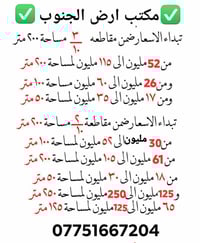 ✅ مكتب ارض الجنوب ✅
تبداء الاسعار ضمن مقاطعه ٣/١٠ مساحة ٢٠٠ متر
من 52 مليون الى ١١٥ مليون لمساحة ٢٠٠ متر
ومن 26 مليون الى ٦٠ مليون لمساحة ١٠٠ متر
ومن ١٧ مليون الى ٣٥ مليون لمساحة ٥٠ متر
تبداء الاسعار ضمن مقاطعة ٢/١٠ مساحة ٢٠٠ متر
من 30 مليون الى ٥٢ مليون لمساحة ١٠٠ متر
من 61 مليون الى ١٠٥ مليون لمساحة ٢٠٠ متر
من ١٨ مليون الى ٣٠ مليون لمساحة ٥٠ متر
و 125 مليون الى 250 مليون لمساحة ٢٥٠ متر
٦٥ مليون الى 125 مليون لمساحة ١٢٥ متر
07751667204